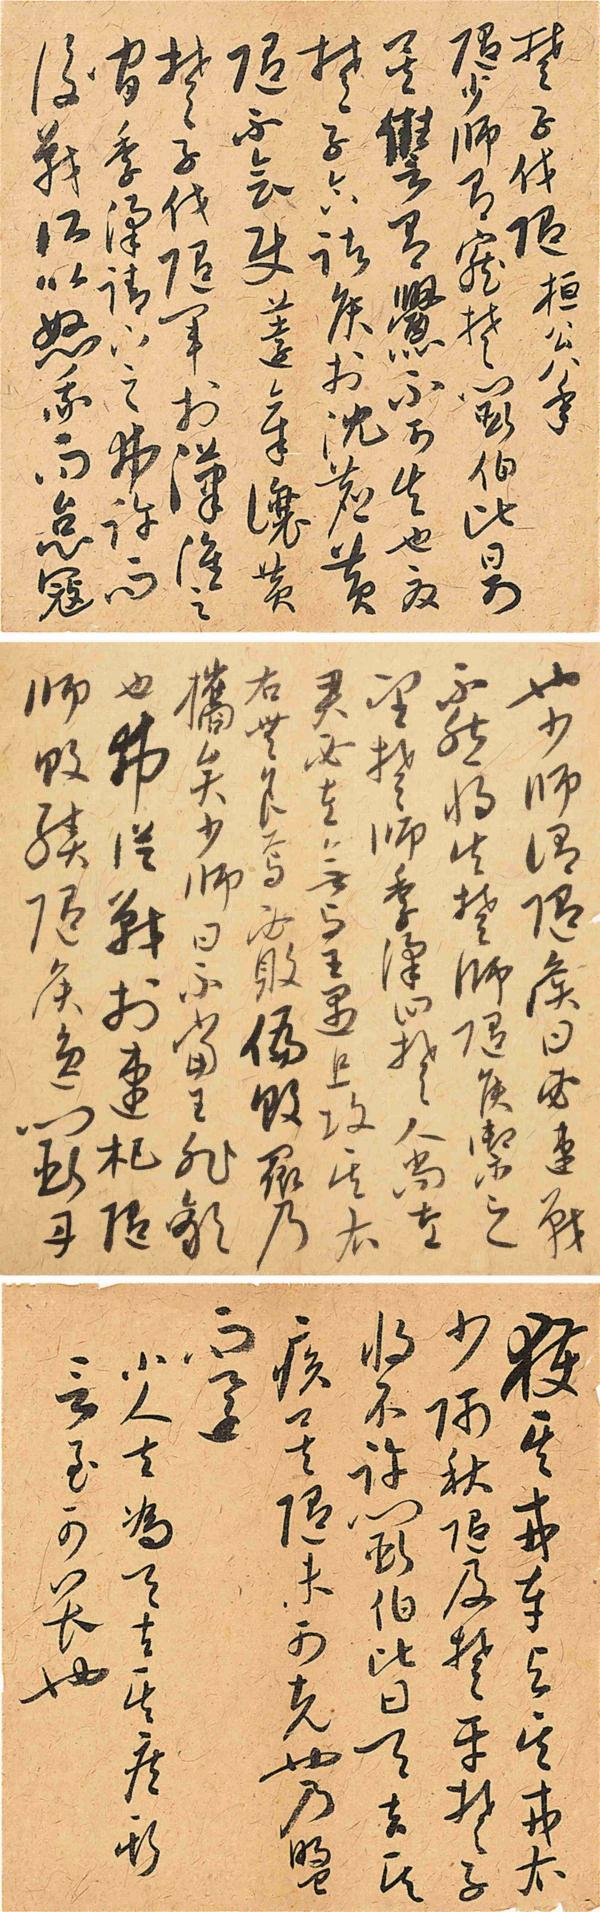 楚子伐隨 桓公八年
隨少師有寵楚鬭伯比曰可
矣讎有釁不可失也夏
楚子合諸侯於沈鹿黃
隨不會使薳章讓黃
楚子伐隨軍於漢淮之
間季梁請下之弗許而
後戰所以怒我而怠寇
也少師謂隨侯曰必速戰
不然將失楚師隨侯禦之
望楚師季梁曰楚人尚左
君必左無與王遇且攻其右
右無良焉必敗偏敗眾乃
攜矣少師曰不當王非敵
也弗從戰於速杞隨
師敗績隨侯逸鬭丹
獲其戎車與其戎右
少師秋隨及楚平楚子
將不許鬭伯比曰天去其
疾矣隨未可克也乃盟
而還
小人去為天去其疾斯
言至可畏也